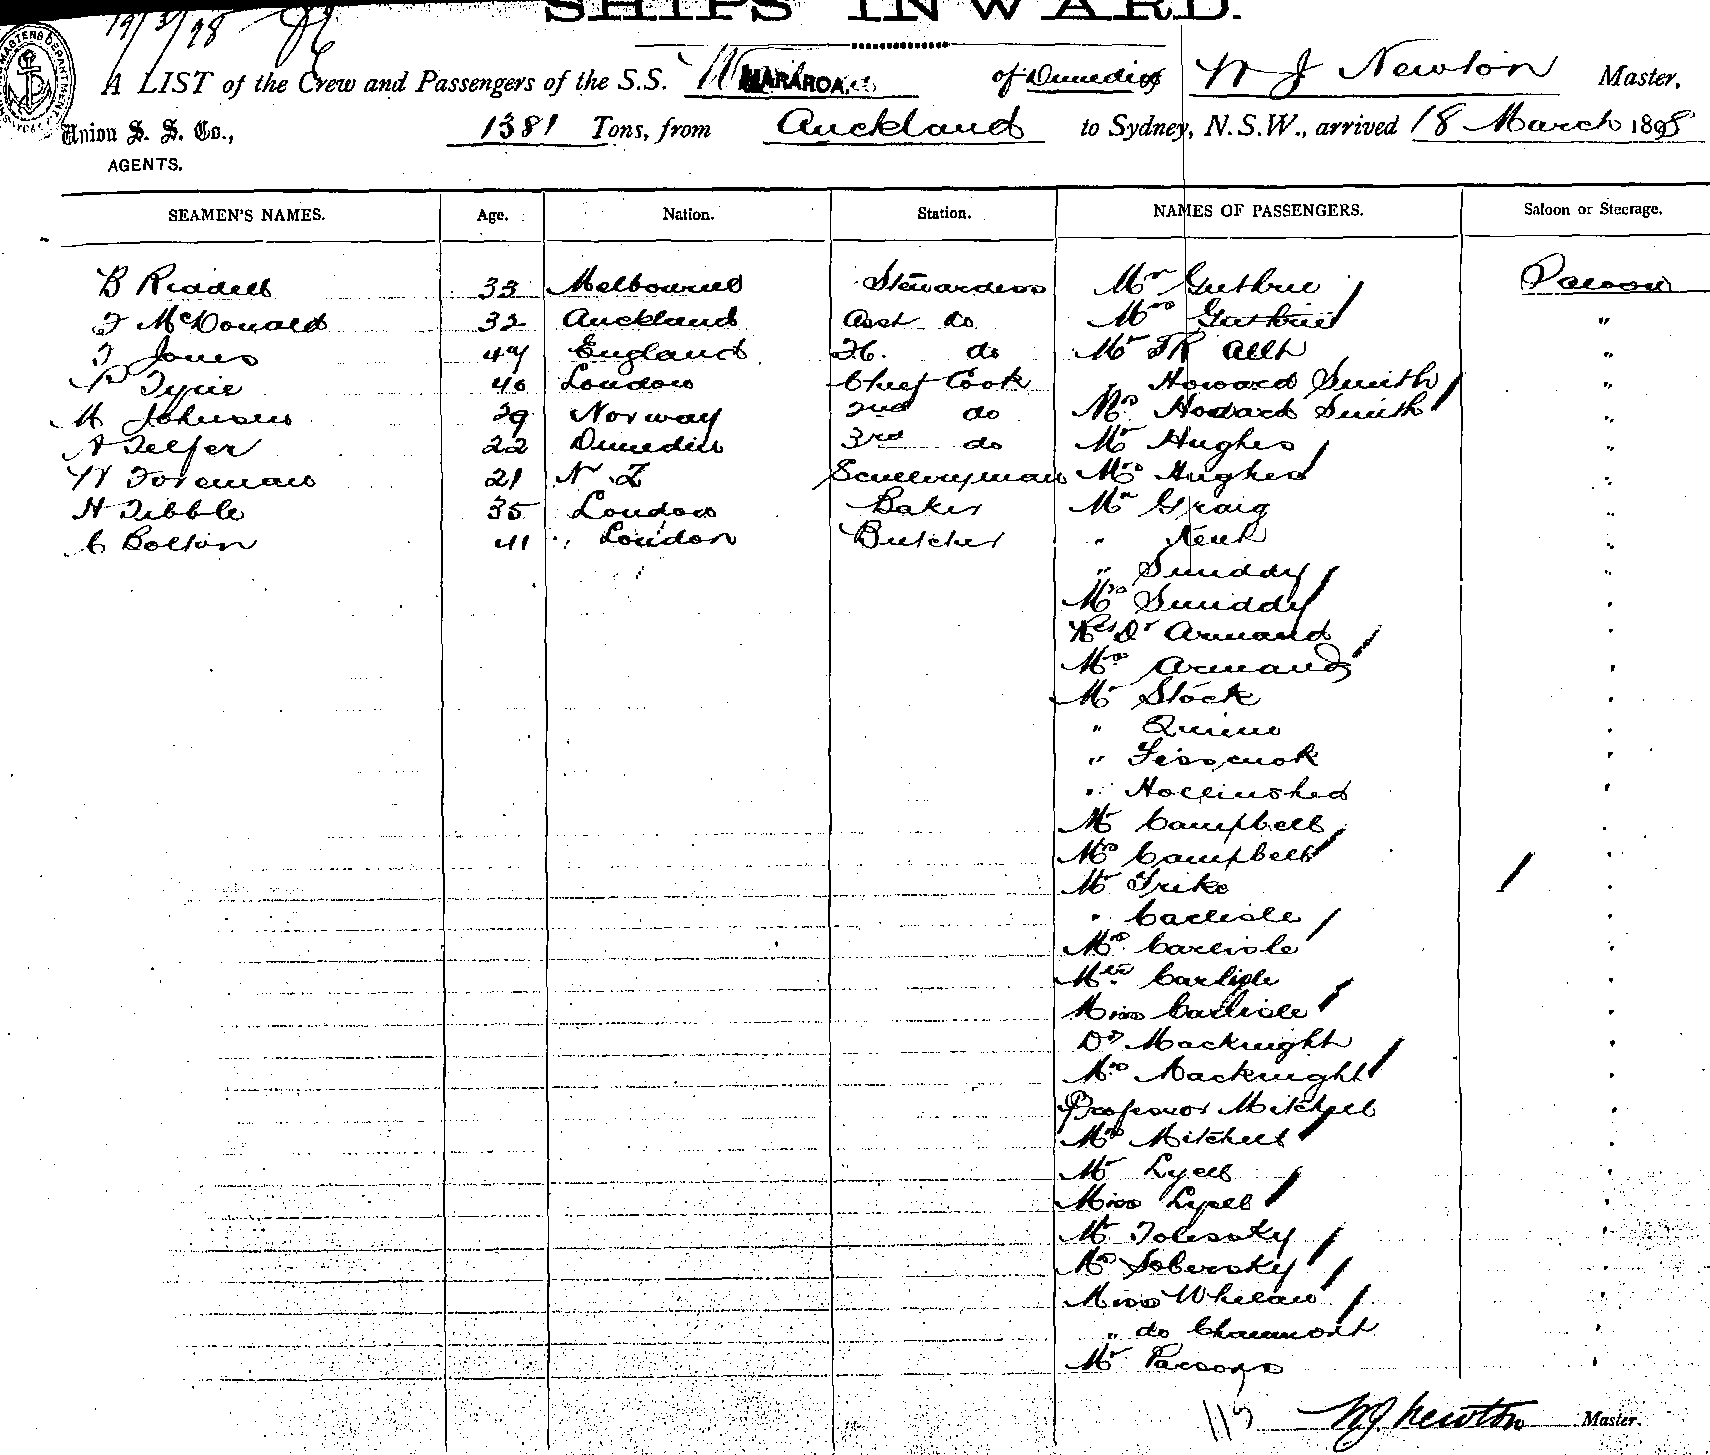 SHIPS INWARD.
19/3/98
A LIST of the Crew and Passengers of the S.S. MARAROA of Dunedin W J Newton Master,
Union S. S. Co., 1381 Tons, from Auckland to Sydney, N.S.W., arrived 18 March 1898
AGENTS.
SEAMEN'S NAMES. Age. Nation. Station. NAMES OF PASSENGERS. Saloon or Steerage.
B Riddell 33 Melbourne Stewardess Mr Guthrie Saloon
J McDonald 32 Auckland Asst do Mrs Guthrie "
J Jones 47 England do Mr "
40 London Chief Cook " Howard Smith "
M Johnsen 29 Norway 2nd do Mrs Howard Smith "
A Telfer 22 Dunedin 3rd do Mr Hughes "
W Foreman 21 N Z Sculleryman Mrs Hughes "
H Tibble 35 London Baker Mr Graig "
C Bolton 41 " London Butcher " "
" Smiddy "
Mrs Smiddy "
Armand "
Mrs Armand "
Mr Stock "
" "
" "
" Hollinshed "
Mr Campbell "
Mrs Campbell "
Mr "
" Carlisle "
Mrs Carlisle "
Carlisle "
Miss Carlisle "
Dr Macknight "
Mrs Macknight "
Professor Mitchell "
Mrs Mitchell "
Mr Lyell "
Miss Lyell "
Mr "
Mrs "
Miss Whelan "
" do Chaumont "
Mr Parsons "
115 W.J. Newton Master.